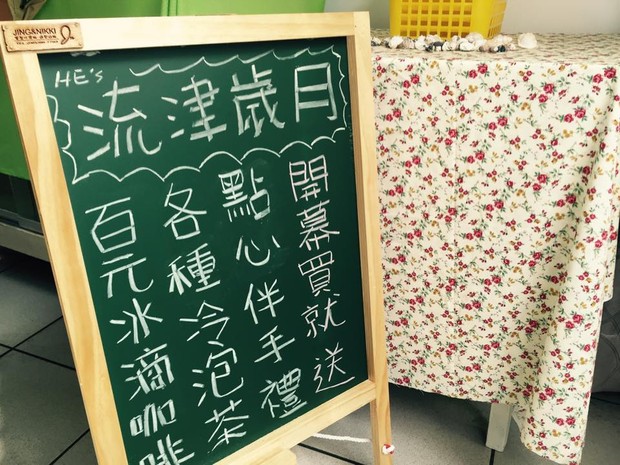 JING&NIKKI
HE's
流津歲月
開幕買就送
點心伴手禮
各種冷泡茶
百元冰滴咖啡